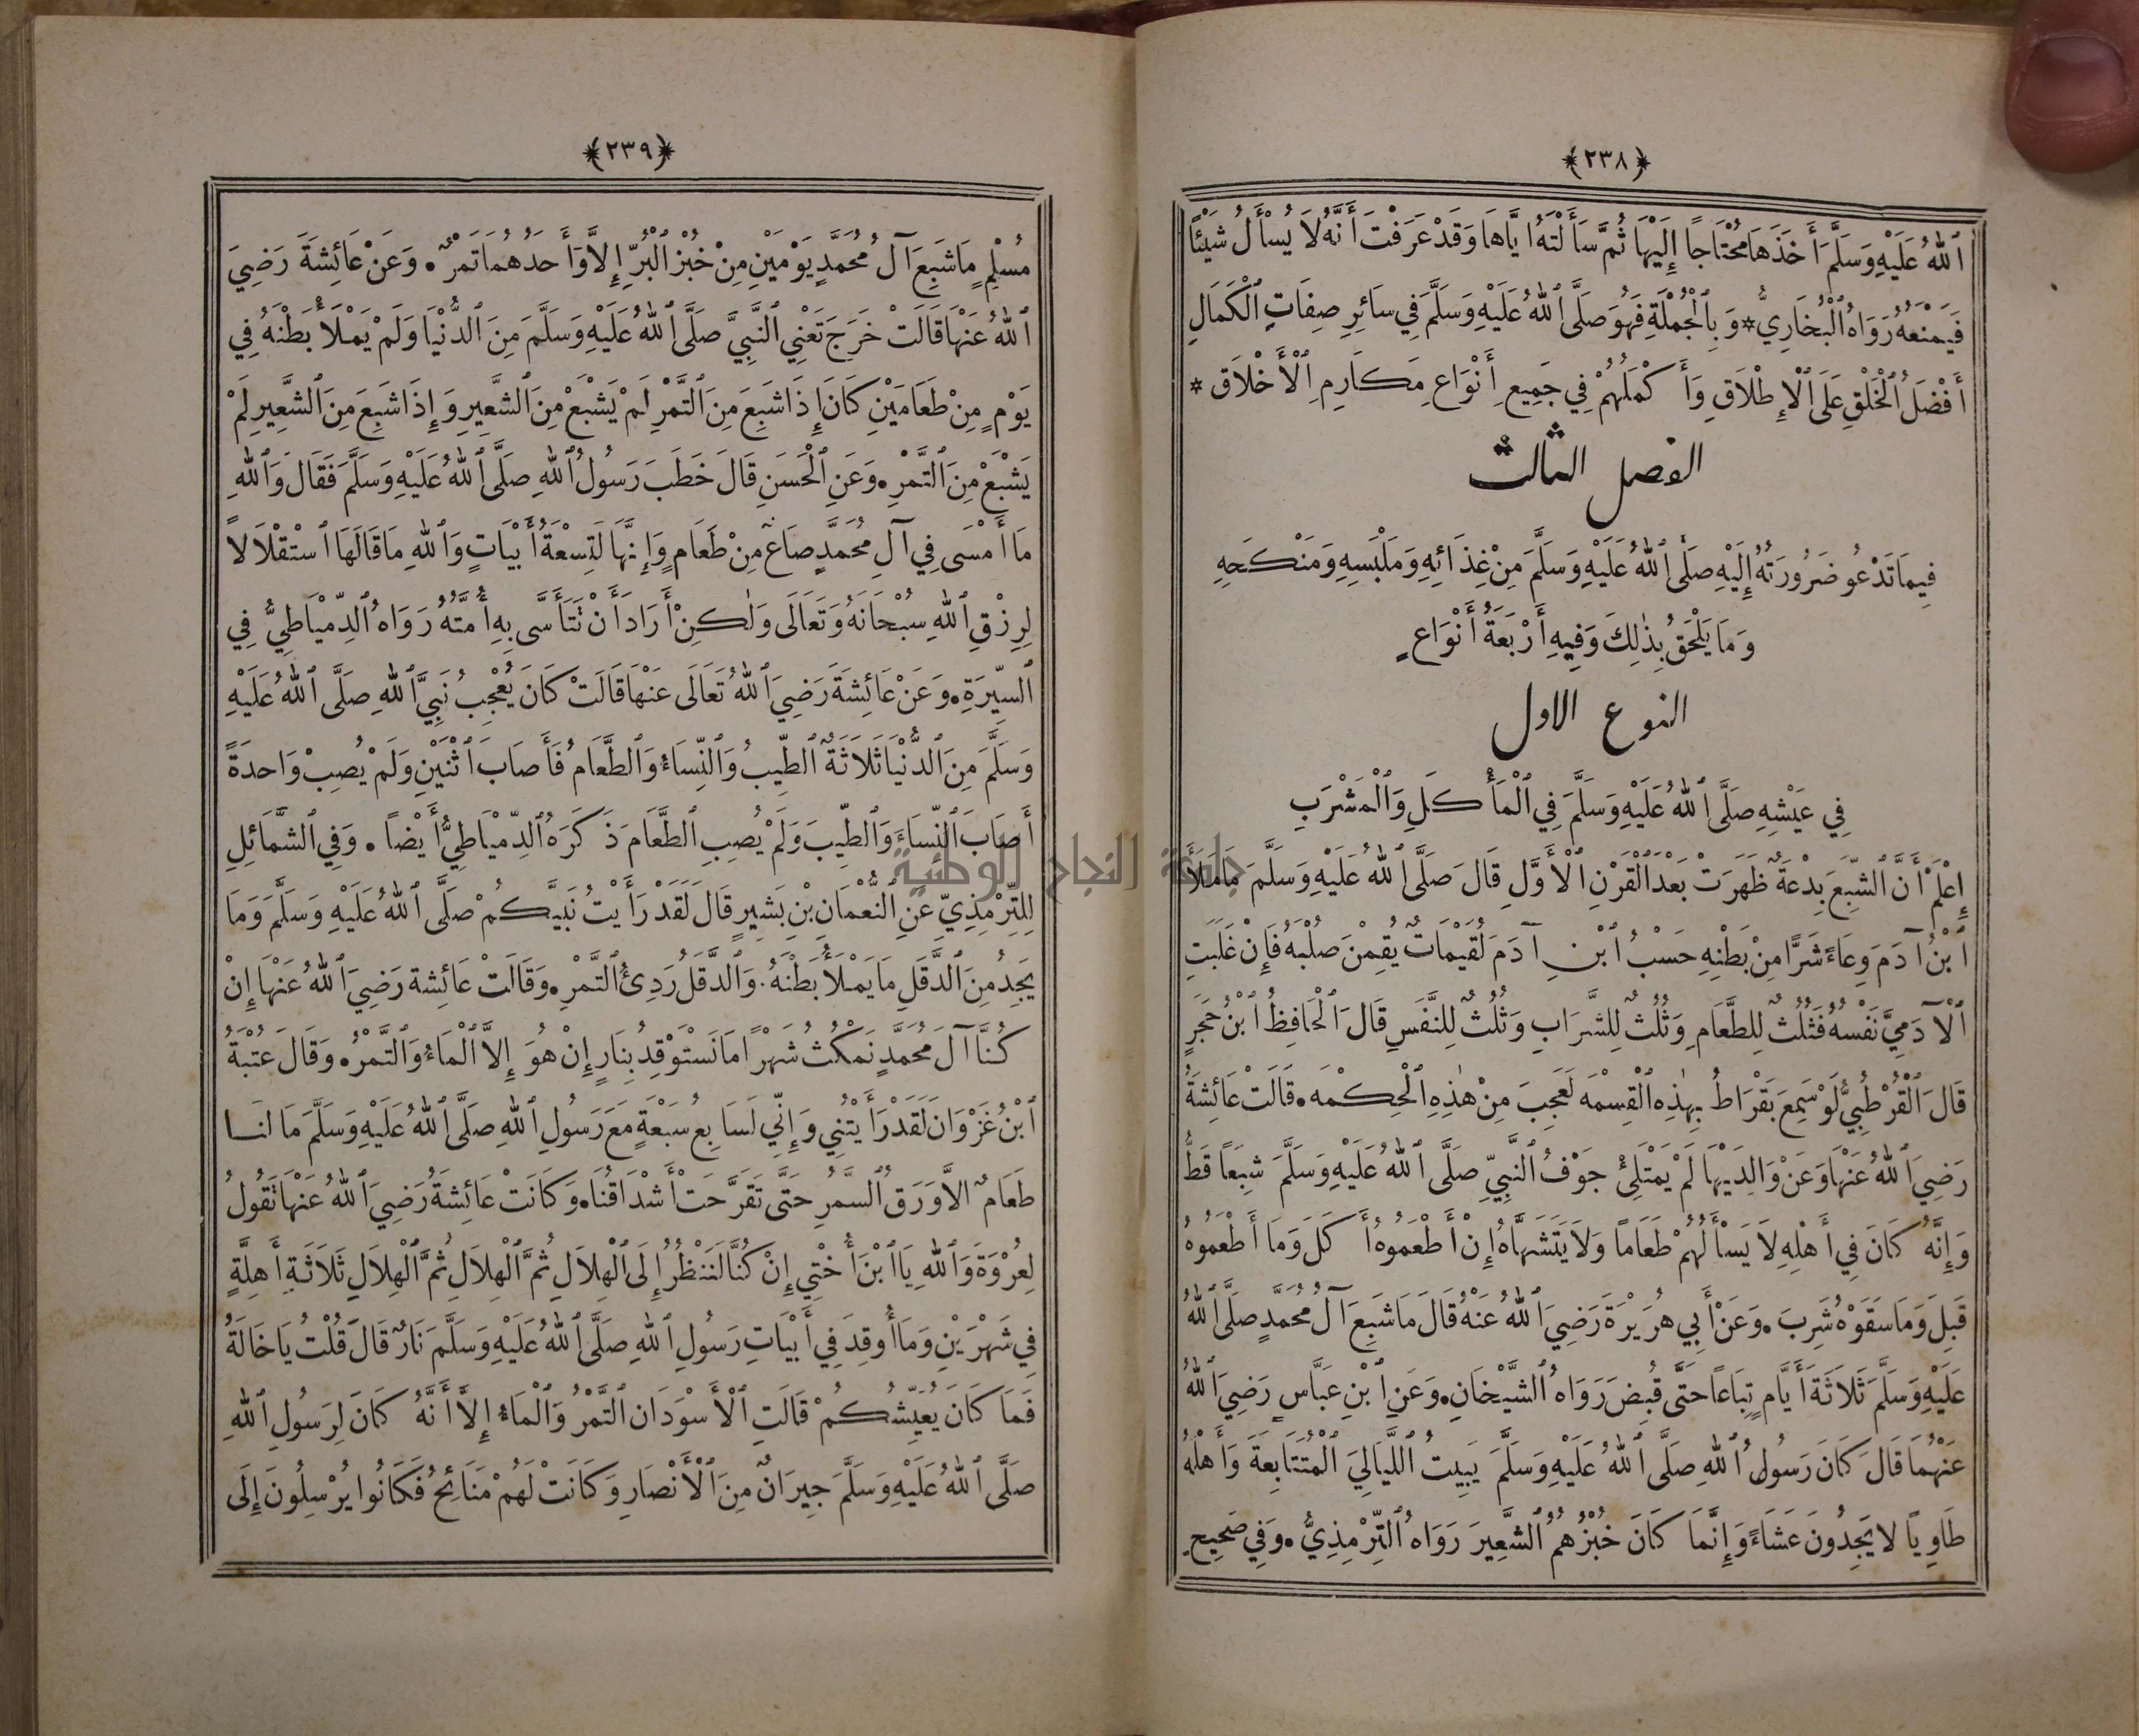 ﴿٢٣٨﴾
ٱللهُ عَلَيْهِ وَسَلَّمَ أَخَذَهَا مُحْتَاجًا إِلَيْهَا ثُمَّ سَأَلْتَهُ إِيَّاهَا وَقَدْ عَرَفْتَ أَنَّهُ لَا يُسْأَلُ شَيْئًا
فَيَمْنَعُهُ رَوَاهُ ٱلْبُخَارِيُّ * وَبِٱلْجُمْلَةِ فَهُوَ صَلَّى ٱللهُ عَلَيْهِ وَسَلَّمَ فِي سَائِرِ صِفَاتِ ٱلْكَمَالِ
أَفْضَلُ ٱلْخَلْقِ عَلَى ٱلْإِطْلَاقِ وَأَكْمَلُهُمْ فِي جَمِيعِ أَنْوَاعِ مَكَارِمِ ٱلْأَخْلَاقِ *
الفصل الثالث
فِيمَا تَدْعُو ضَرُورَتُهُ إِلَيْهِ صَلَّى ٱللهُ عَلَيْهِ وَسَلَّمَ مِنْ غِذَائِهِ وَمَلْبَسِهِ وَمَنْكَحِهِ
وَمَا يَلْحَقُ بِذٰلِكَ وَفِيهِ أَرْبَعَةُ أَنْوَاعٍ
النوع الاول
فِي عَيْشِهِ صَلَّى ٱللهُ عَلَيْهِ وَسَلَّمَ فِي ٱلْمَأْكَلِ وَٱلْمَشْرَبِ
إِعْلَمْ أَنَّ ٱلشِّبَعَ بِدْعَةٌ ظَهَرَتْ بَعْدَ ٱلْقَرْنِ ٱلْأَوَّلِ قَالَ صَلَّى ٱللهُ عَلَيْهِ وَسَلَّمَ مَا مَلَأَ
ٱبْنُ آدَمَ وِعَاءً شَرًّا مِنْ بَطْنِهِ حَسْبُ ٱبْنِ آدَمَ لُقَيْمَاتٌ يُقِمْنَ صُلْبَهُ فَإِنْ غَلَبَتِ
ٱلْآدَمِيَّ نَفْسُهُ فَثُلُثٌ لِلطَّعَامِ وَثُلُثٌ لِلشَّرَابِ وَثُلُثٌ لِلنَّفَسِ قَالَ ٱلْحَافِظُ ٱبْنُ حَجَرٍ
قَالَ ٱلْقُرْطُبِيُّ لَوْ سَمِعَ بَقْرَاطُ بِهٰذِهِ ٱلْقِسْمَه لَعَجِبَ مِنْ هٰذِهِ ٱلْحِكْمَه • قَالَتْ عَائِشَةُ
رَضِيَ ٱللهُ عَنْهَا وَعَنْ وَالِدَيْهَا لَمْ يَمْتَلِئْ جَوْفُ ٱلنَّبِيِّ صَلَّى ٱللهُ عَلَيْهِ وَسَلَّمَ شِبَعًا قَطُّ
وَإِنَّهُ كَانَ فِي أَهْلِهِ لَا يَسْأَلُهُمْ طَعَامًا وَلَا يَتَشَهَّاهُ إِنْ أَطْعَمُوهُ أَكَلَ وَمَا أَطْعَمُوهُ
قَبِلَ وَمَا سَقَوْهُ شَرِبَ • وَعَنْ أَبِي هُرَيْرَةَ رَضِيَ ٱللهُ عَنْهُ قَالَ مَا شَبِعَ آلُ مُحَمَّدٍ صَلَّى ٱللهُ
عَلَيْهِ وَسَلَّمَ ثَلَاثَةَ أَيَّامٍ تِبَاعًا حَتَّى قُبِضَ رَوَاهُ ٱلشَّيْخَانِ • وَعَنِ ٱبْنِ عَبَّاسٍ رَضِيَ ٱللهُ
عَنْهُمَا قَالَ كَانَ رَسُولُ ٱللهِ صَلَّى ٱللهُ عَلَيْهِ وَسَلَّمَ يَبِيتُ ٱللَّيَالِيَ ٱلْمُتَتَابِعَةَ وَأَهْلُهُ
طَاوِيًا لَا يَجِدُونَ عَشَاءً وَإِنَّمَا كَانَ خُبْزُهُمُ ٱلشَّعِيرَ رَوَاهُ ٱلتِّرْمِذِيُّ • وَفِي صَحِيحِ
﴿٢٣٩﴾
مُسْلِمٍ مَا شَبِعَ آلُ مُحَمَّدٍ يَوْمَيْنِ مِنْ خُبْزِ ٱلْبُرِّ إِلَّا وَأَحَدُهُمَا تَمْرٌ • وَعَنْ عَائِشَةَ رَضِيَ
ٱللهُ عَنْهَا قَالَتْ خَرَجَ تَعْنِي ٱلنَّبِيَّ صَلَّى ٱللهُ عَلَيْهِ وَسَلَّمَ مِنَ ٱلدُّنْيَا وَلَمْ يَمْلَأْ بَطْنَهُ فِي
يَوْمٍ مِنْ طَعَامَيْنِ كَانَ إِذَا شَبِعَ مِنَ ٱلتَّمْرِ لَمْ يَشْبَعْ مِنَ ٱلشَّعِيرِ وَإِذَا شَبِعَ مِنَ ٱلشَّعِيرِ لَمْ
يَشْبَعْ مِنَ ٱلتَّمْرِ • وَعَنِ ٱلْحَسَنِ قَالَ خَطَبَ رَسُولُ ٱللهِ صَلَّى ٱللهُ عَلَيْهِ وَسَلَّمَ فَقَالَ وَٱللهِ
مَا أَمْسَى فِي آلِ مُحَمَّدٍ صَاعٌ مِنْ طَعَامٍ وَإِنَّهَا لَتِسْعَةُ أَبْيَاتٍ وَٱللهِ مَا قَالَهَا ٱسْتِقْلَالًا
لِرِزْقِ ٱللهِ سُبْحَانَهُ وَتَعَالَى وَلٰكِنْ أَرَادَ أَنْ تَتَأَسَّى بِهِ أُمَّتُهُ رَوَاهُ ٱلدِّمْيَاطِيُّ فِي
ٱلسِّيرَةِ • وَعَنْ عَائِشَةَ رَضِيَ ٱللهُ تَعَالَى عَنْهَا قَالَتْ كَانَ يُعْجِبُ نَبِيَّ ٱللهِ صَلَّى ٱللهُ عَلَيْهِ
وَسَلَّمَ مِنَ ٱلدُّنْيَا ثَلَاثَةٌ ٱلطِّيبُ وَٱلنِّسَاءُ وَٱلطَّعَامُ فَأَصَابَ ٱثْنَيْنِ وَلَمْ يُصِبْ وَاحِدَةً
أَصَابَ ٱلنِّسَاءَ وَٱلطِّيبَ وَلَمْ يُصِبِ ٱلطَّعَامَ ذَكَرَهُ ٱلدِّمْيَاطِيُّ أَيْضًا • وَفِي ٱلشَّمَائِلِ
لِلتِّرْمِذِيِّ عَنِ ٱلنُّعْمَانِ بْنِ بَشِيرٍ قَالَ لَقَدْ رَأَيْتُ نَبِيَّكُمْ صَلَّى ٱللهُ عَلَيْهِ وَسَلَّمَ وَمَا
يَجِدُ مِنَ ٱلدَّقَلِ مَا يَمْلَأُ بَطْنَهُ • وَٱلدَّقَلُ رَدِئُ ٱلتَّمْرِ • وَقَالَتْ عَائِشَة رَضِيَ ٱللهُ عَنْهَا إِنْ
كُنَّا آلَ مُحَمَّدٍ نَمْكُثُ شَهْرًا مَا نَسْتَوْقِدُ بِنَارٍ إِنْ هُوَ إِلَّا ٱلْمَاءُ وَٱلتَّمْرُ • وَقَالَ عُتْبَةُ
ٱبْنُ غَزْوَانَ لَقَدْ رَأَيْتُنِي وَإِنِّي لَسَابِعُ سَبْعَةٍ مَعَ رَسُولِ ٱللهِ صَلَّى ٱللهُ عَلَيْهِ وَسَلَّمَ مَا لَنَا
طَعَامٌ الَّا وَرَقُ ٱلسَّمُرِ حَتَّى تَقَرَّحَتْ أَشْدَاقُنَا • وَكَانَتْ عَائِشَةُ رَضِيَ ٱللهُ عَنْهَا تَقُولُ
لِعُرْوَةَ وَٱللهِ يَا ٱبْنَ أُخْتِي إِنْ كُنَّا لَنَنْظُرُ إِلَى ٱلْهِلَالِ ثُمَّ ٱلْهِلَالِ ثُمَّ ٱلْهِلَالِ ثَلَاثَةِ أَهِلَّةٍ
فِي شَهْرَيْنِ وَمَا أُوقِدَ فِي أَبْيَاتِ رَسُولِ ٱللهِ صَلَّى ٱللهُ عَلَيْهِ وَسَلَّمَ نَارٌ قَالَ قُلْتُ يَا خَالَةُ
فَمَا كَانَ يُعَيِّشُكُمْ قَالَتِ ٱلْأَسْوَدَانِ ٱلتَّمْرُ وَٱلْمَاءُ إِلَّا أَنَّهُ كَانَ لِرَسُولِ ٱللهِ
صَلَّى ٱللهُ عَلَيْهِ وَسَلَّمَ جِيرَانٌ مِنَ ٱلْأَنْصَارِ وَكَانَتْ لَهُمْ مَنَائِحُ فَكَانُوا يُرْسِلُونَ إِلَى
جامعة النجاح الوطنية